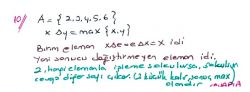 10/ A = {2,3,4,5,6}
x Δ y = max {x,y}
Birim eleman xΔe=eΔx=x idi
Yani sonucu değiştirmeyen eleman idi.
2, hangi elemanla işleme sokulursa, sokulsun
cevap diğer sayı çıkar. (2 küçük kalır, sonuç max)
elemandır.